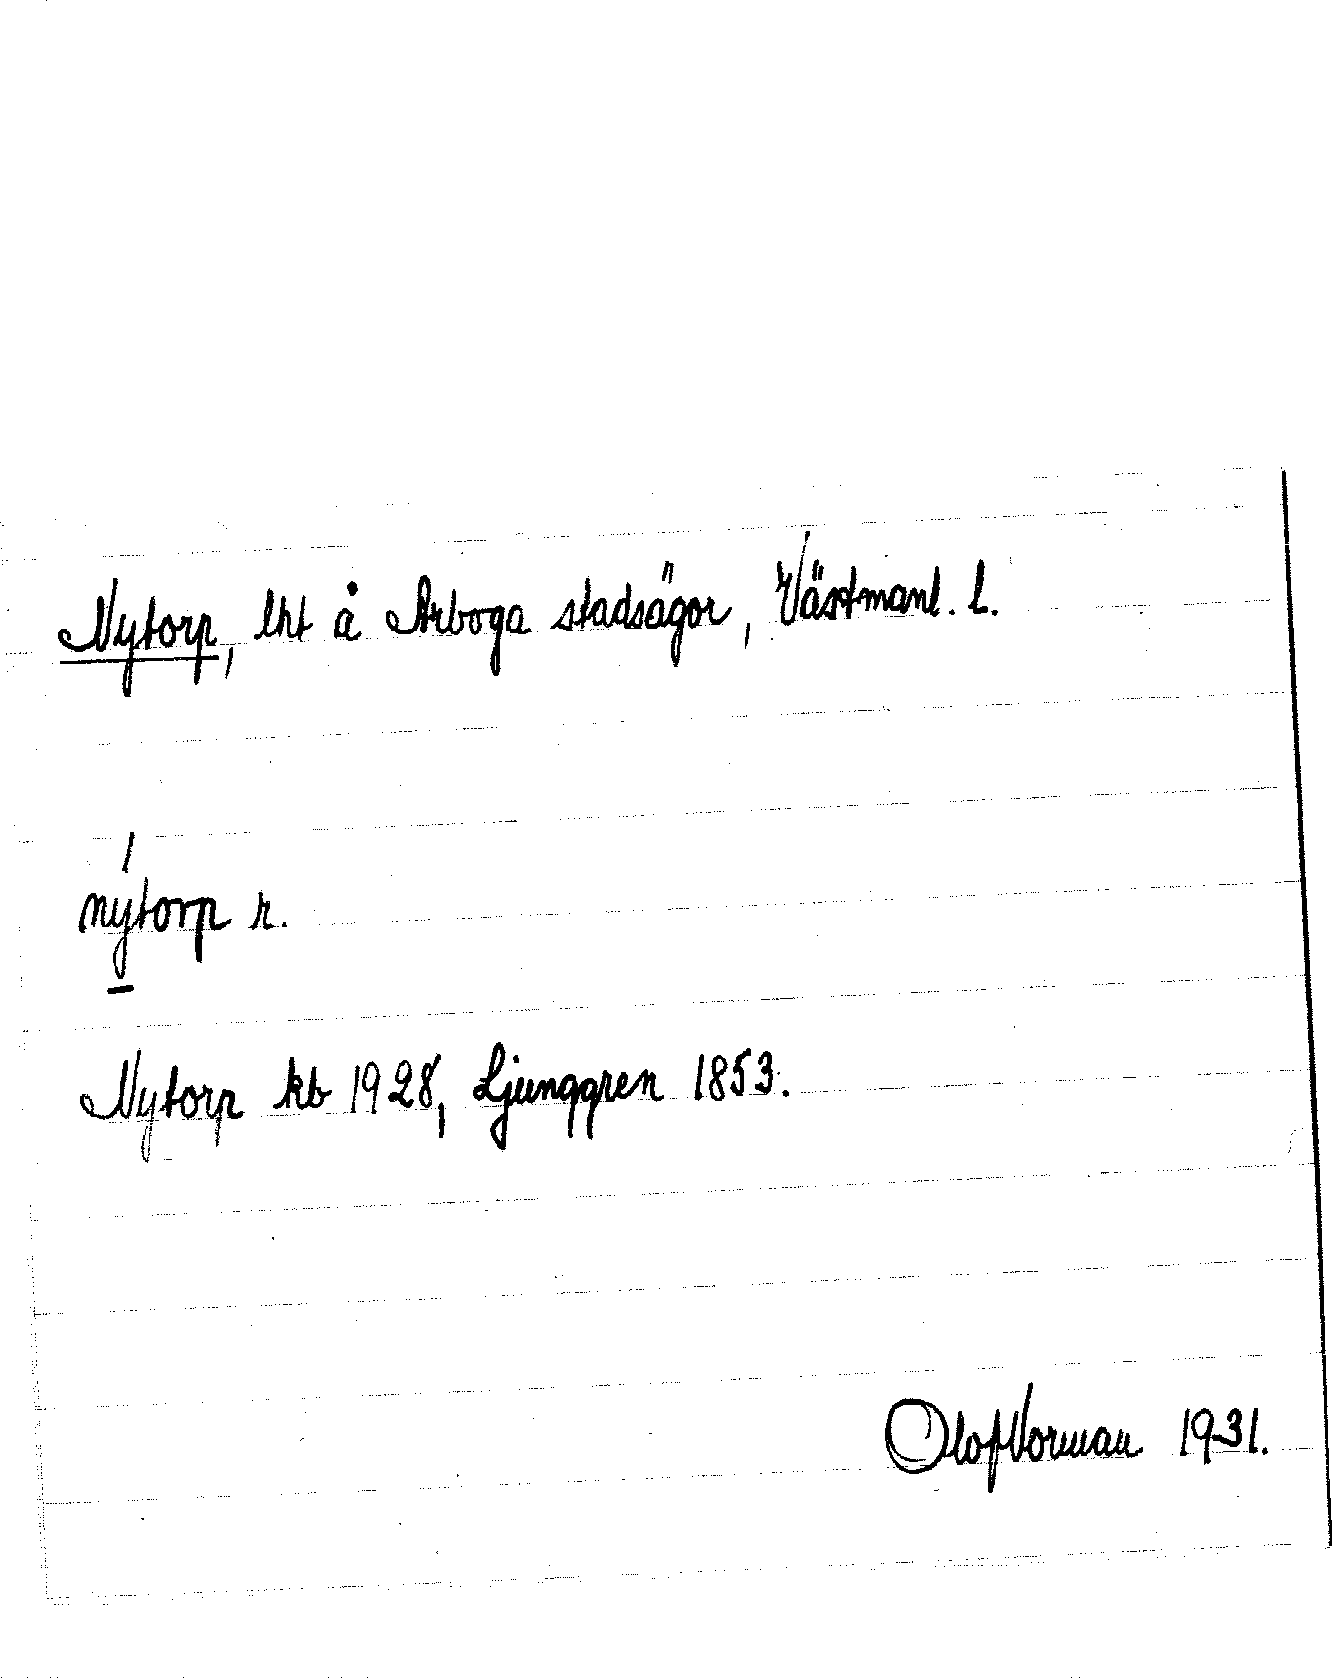 Nytorp, lht å Arboga stadsägor, Västmanl. L.
nýtorp r.
Nytorp kb 1928, Ljunggren 1853.
Olof Norman 1931.